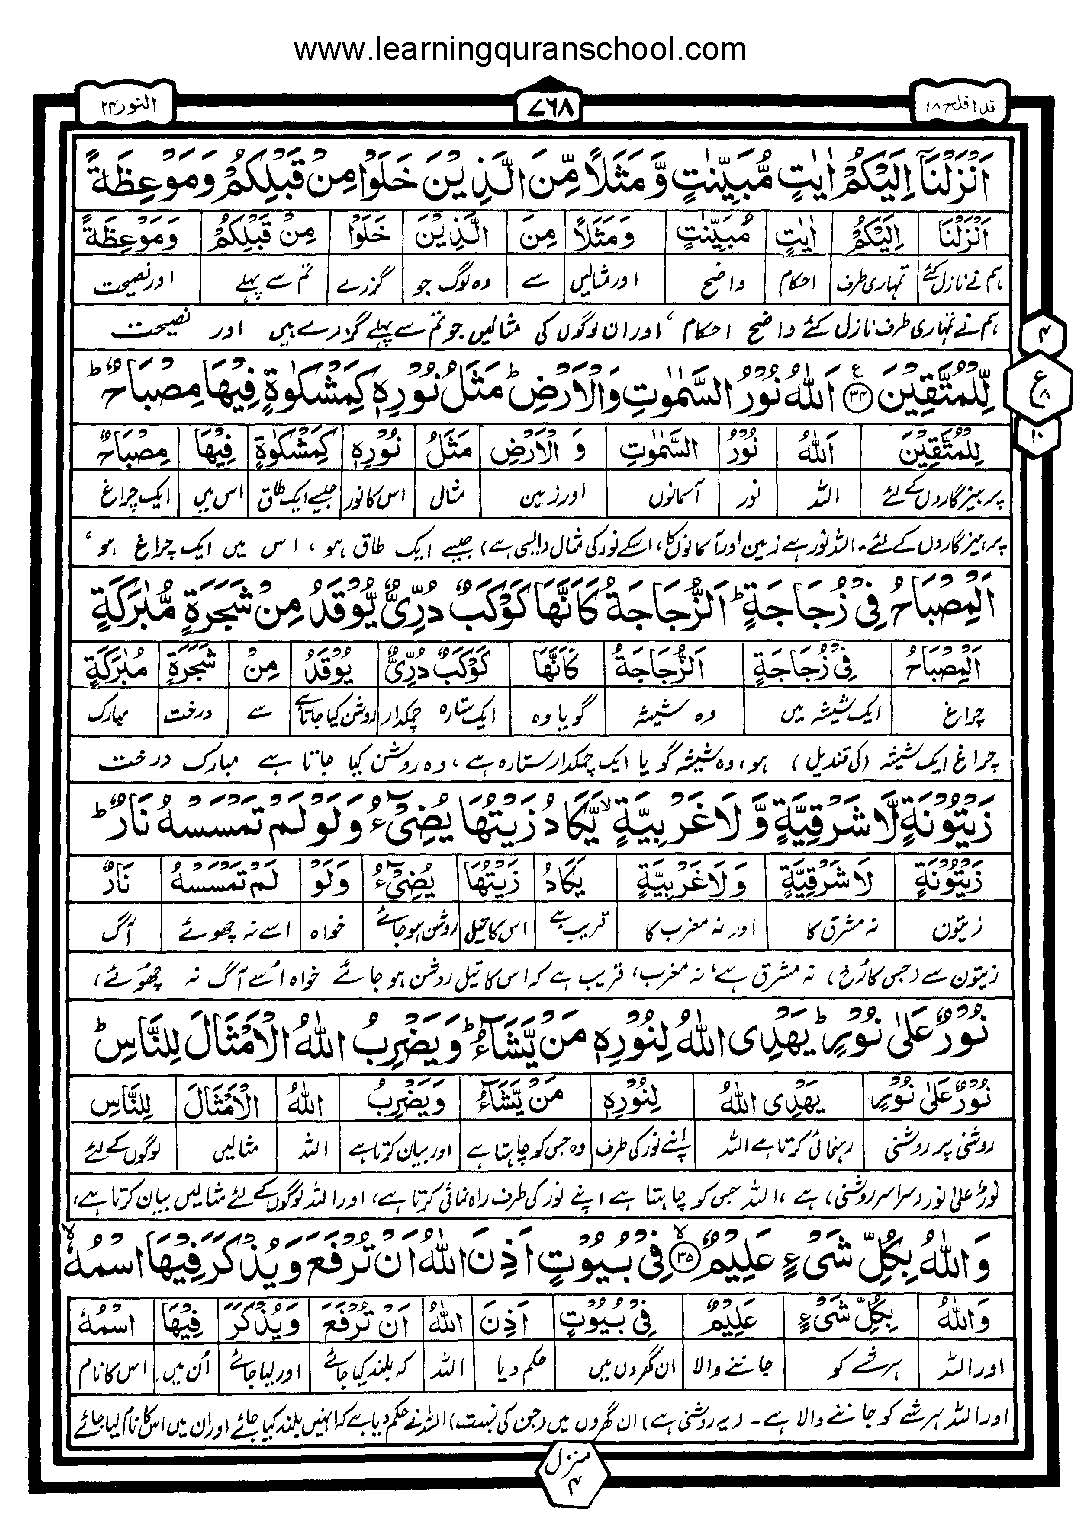 www.learningquranschool.com
قد افلح ۱۸
۷۶۸
النور ۲۴
اَنْزَلْنَاۤ اِلَیْكُمْ اٰیٰتٍ مُّبَیِّنٰتٍ وَّ مَثَلًا مِّنَ الَّذِیْنَ خَلَوْا مِنْ قَبْلِكُمْ وَمَوْعِظَةً
اَنْزَلْنَاۤ اِلَیْكُمْ اٰیٰتٍ مُّبَیِّنٰتٍ وَمَثَلًا مِنَ الَّذِیْنَ خَلَوْا مِنْ قَبْلِكُمْ وَمَوْعِظَةً
ہم نے نازل کئے تمہاری طرف احکام واضح اور مثالیں سے وہ لوگ جو گزرے تم سے پہلے اور نصیحت
ہم نے تمہاری طرف نازل کئے واضح احکام ، اور ان لوگوں کی مثالیں جو تم سے پہلے گزرے ہیں اور نصیحت
۴
ع
۸
۱۰
لِّلْمُتَّقِیْنَ ۳۴ اَللّٰهُ نُوْرُ السَّمٰوٰتِ وَالْاَرْضِ ؕ مَثَلُ نُوْرِهٖ كَمِشْكٰوةٍ فِیْهَا مِصْبَاحٌ ؕ
لِلْمُتَّقِیْنَ اَللّٰهُ نُوْرُ السَّمٰوٰتِ وَ الْاَرْضِ مَثَلُ نُوْرِهٖ كَمِشْكٰوةٍ فِیْهَا مِصْبَاحٌ
پرہیزگاروں کے لئے اللہ نور آسمانوں اور زمین مثال اس کا نور جیسے ایک طاق اس میں ایک چراغ
پرہیزگاروں کے لئے۔ اللہ نور ہے زمین اور آسمانوں کا، اسکے نور کی مثال (ایسی ہے) جیسے ایک طاق ہو ، اس میں ایک چراغ ہو ،
اَلْمِصْبَاحُ فِیْ زُجَاجَةٍ ؕ اَلزُّجَاجَةُ كَاَنَّهَا كَوْكَبٌ دُرِّیٌّ یُّوْقَدُ مِنْ شَجَرَةٍ مُّبٰرَكَةٍ
اَلْمِصْبَاحُ فِیْ زُجَاجَةٍ اَلزُّجَاجَةُ كَاَنَّهَا كَوْكَبٌ دُرِّیٌّ یُوْقَدُ مِنْ شَجَرَةٍ مُبٰرَكَةٍ
چراغ ایک شیشہ میں وہ شیشہ گویا وہ ایک ستارہ چمکدار روشن کیا جاتا ہے سے درخت مبارک
چراغ ایک شیشہ (کی قندیل) میں ہو، وہ شیشہ گویا ایک چمکدار ستارہ ہے ، وہ روشن کیا جاتا ہے مبارک درخت
زَیْتُوْنَةٍ لَّا شَرْقِیَّةٍ وَّ لَا غَرْبِیَّةٍ ۙ یَّكَادُ زَیْتُهَا یُضِیْٓءُ وَلَوْ لَمْ تَمْسَسْهُ نَارٌ ؕ
زَیْتُوْنَةٍ لَا شَرْقِیَّةٍ وَلَا غَرْبِیَّةٍ یَكَادُ زَیْتُهَا یُضِیْٓءُ وَلَوْ لَمْ تَمْسَسْهُ نَارٌ
زیتون نہ مشرق کا اور نہ مغرب کا قریب ہے اس کا تیل روشن ہو جائے خواہ اسے نہ چھوئے آگ
زیتون سے (جس کا رُخ) نہ مشرق ہے نہ مغرب، قریب ہے کہ اس کا تیل روشن ہو جائے خواہ اُسے آگ نہ چھوئے،
نُوْرٌ عَلٰی نُوْرٍ ؕ یَهْدِی اللّٰهُ لِنُوْرِهٖ مَنْ یَّشَآءُ ؕ وَ یَضْرِبُ اللّٰهُ الْاَمْثَالَ لِلنَّاسِ ؕ
نُوْرٌ عَلٰی نُوْرٍ یَهْدِی اللّٰهُ لِنُوْرِهٖ مَنْ یَّشَآءُ وَیَضْرِبُ اللّٰهُ الْاَمْثَالَ لِلنَّاسِ
روشنی پر روشنی رہنمائی کرتا ہے اللہ اپنے نور کی طرف وہ جس کو چاہتا ہے اور بیان کرتا ہے اللہ مثالیں لوگوں کے لئے
نورٌ علیٰ نور (سراسر روشنی) ہے ، اللہ جس کو چاہتا ہے اپنے نور کی طرف راہنمائی کرتا ہے، اور اللہ لوگوں کے لئے مثالیں بیان کرتا ہے،
وَ اللّٰهُ بِكُلِّ شَیْءٍ عَلِیْمٌ ۙ ۳۵ فِیْ بُیُوْتٍ اَذِنَ اللّٰهُ اَنْ تُرْفَعَ وَ یُذْكَرَ فِیْهَا اسْمُهٗ ۙ
وَاللّٰهُ بِكُلِّ شَیْءٍ عَلِیْمٌ فِیْ بُیُوْتٍ اَذِنَ اللّٰهُ اَنْ تُرْفَعَ وَیُذْكَرَ فِیْهَا اسْمُهٗ
اور اللہ ہر شے کو جاننے والا ان گھروں میں حکم دیا اللہ کہ بلند کیا جائے اور لیا جائے اُن میں اس کا نام
اور اللہ ہر شے کو جاننے والا ہے۔ (یہ روشنی ہے) ان گھروں میں (جن کی نسبت) اللہ نے حکم دیا ہے کہ انہیں بلند کیا جائے اور ان میں اس کا نام لیا جائے
منزل ۴